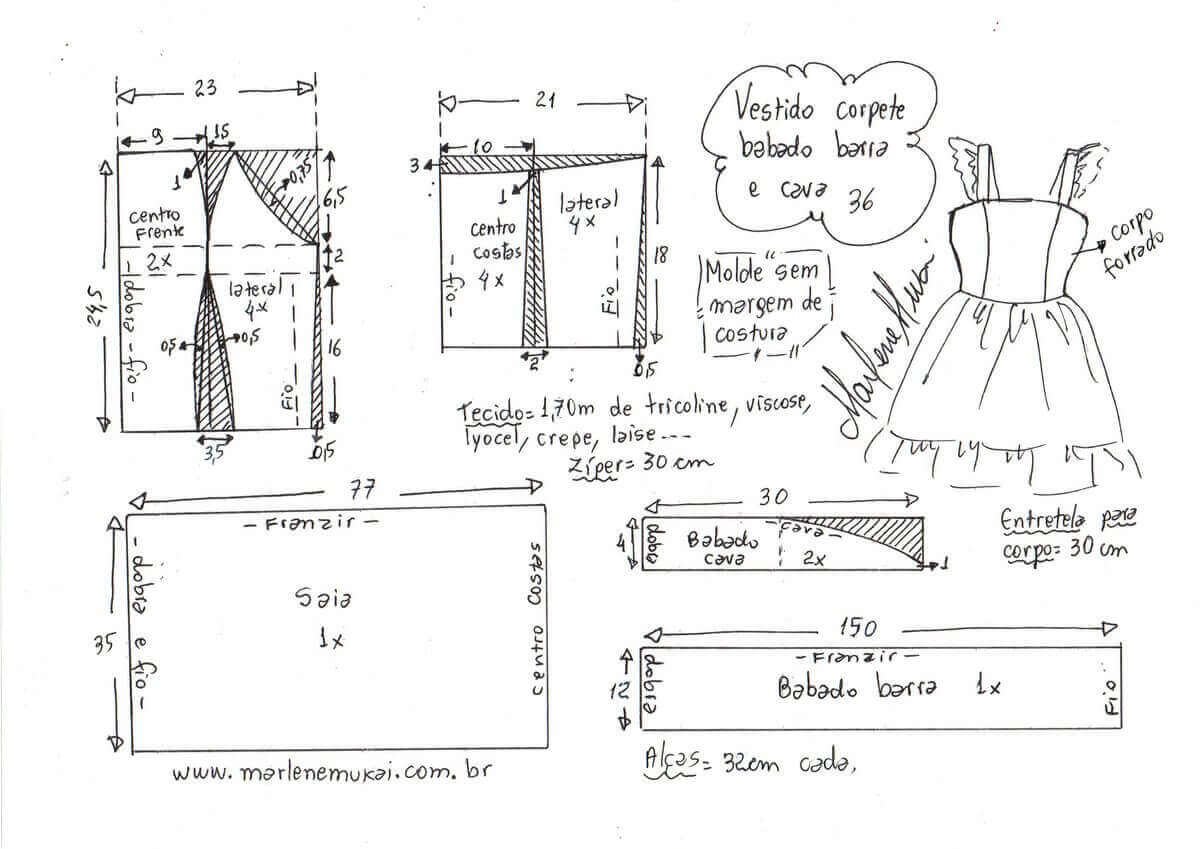 23
9
15
1
0,75
6,5
centro
Frente
2x
2
24,5
- dobra - fio -
lateral
4x
0,5
0,5
16
Fio
3,5
0,5
21
10
3
1
lateral
4x
centro
costas
4x
- fio -
Fio
18
2
0,5
Vestido corpete
babado barra
e cava 36
Molde sem
margem de
costura
corpo
forrado
Marlene Mukai
Tecido = 1,70m de tricoline, viscose,
lyocel, crepe, laise ---
Zíper = 30 cm
77
- Franzir -
- dobra e fio -
Saia
1x
centro costas
35
www.marlenemukai.com.br
30
4
dobra
Babado
cava
- cava -
2x
1
Entretela para
corpo = 30 cm
150
12
dobra
- Franzir -
Babado barra 1x
Fio
Alças = 32cm cada,